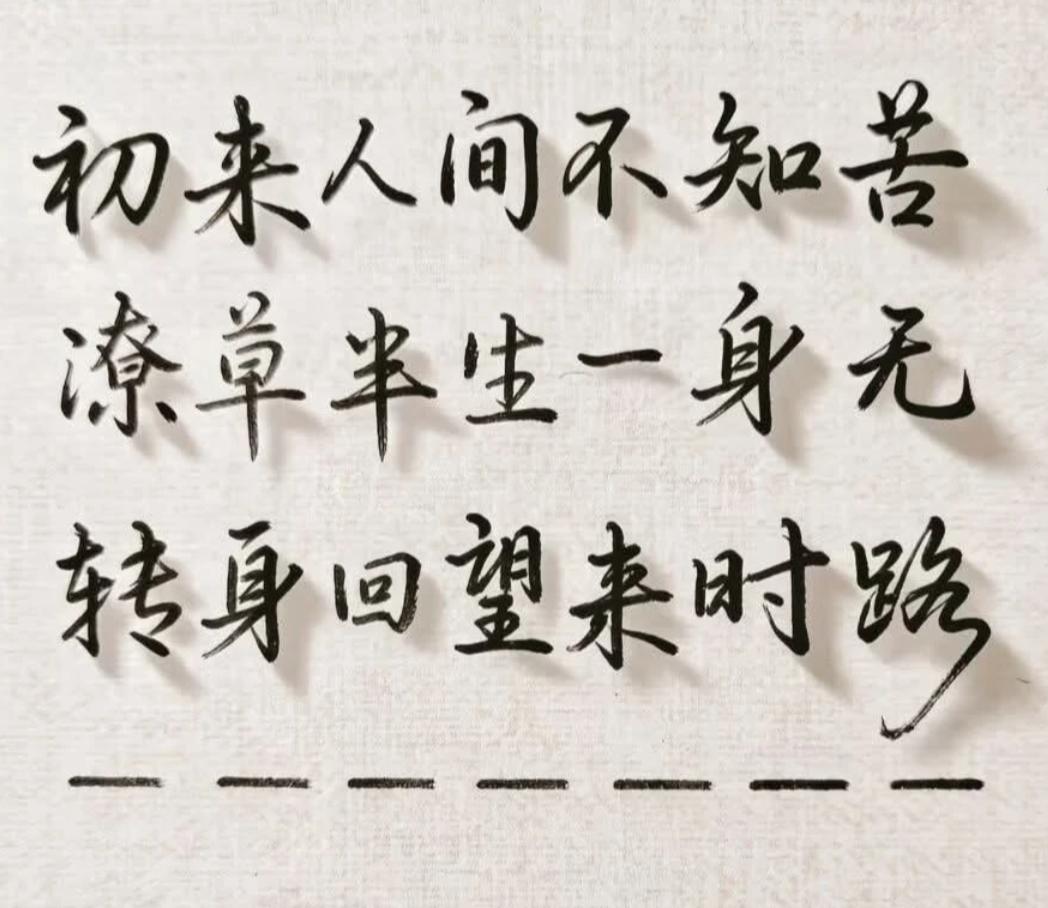 初来人间不知苦
潦草半生一身无
转身回望来时路